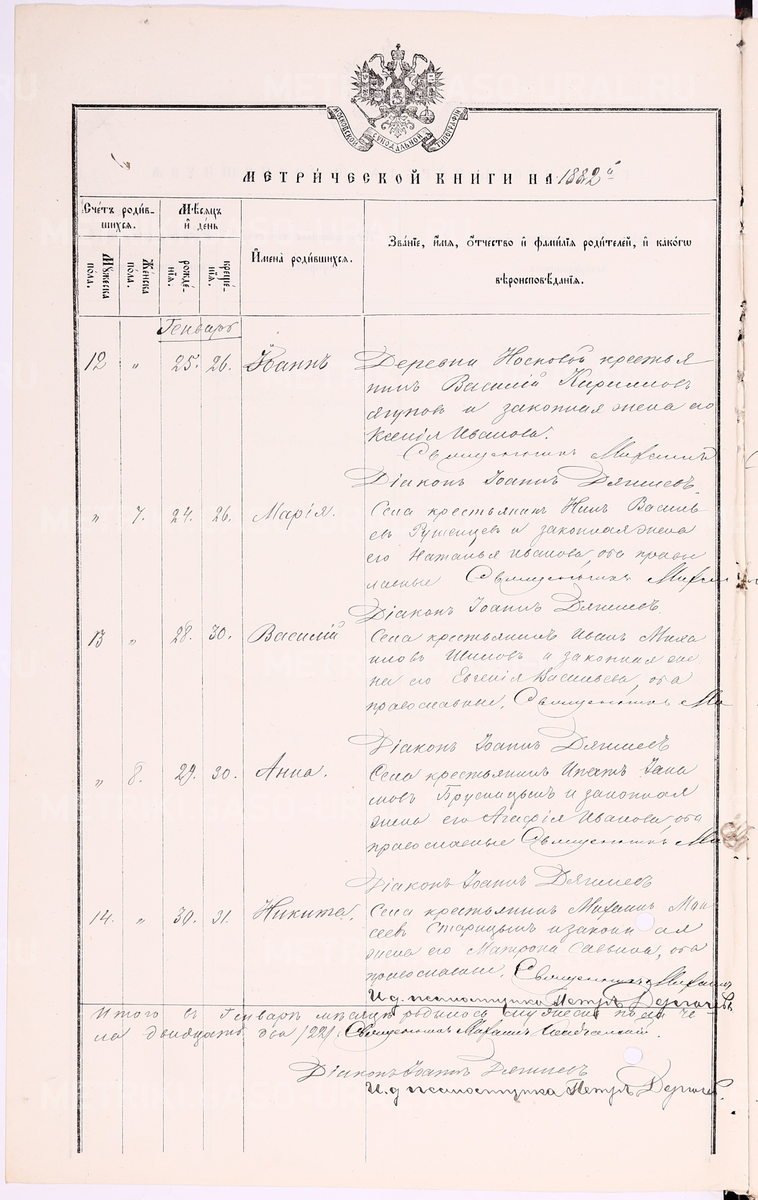 МЕТРИ́ЧЕСКОЙ КНИГИ НА 1882 й
Сче́тъ роди́вшихся.
Мѣ́сяцъ и де́нь
Мꙋ́жеска пола.
Же́нска пола.
рожде́нїѧ.
креще́нїѧ.
И҆мена̀ роди́вшихсѧ.
Зва́нїе, и҆́мѧ, ѻ҆́тчество и҆ фами́лїѧ роди́телей, и҆ како́гѡ
вѣроисповѣ́данїѧ.
Генварь
12 " 25. 26. Іоаннъ Деревни Носковой крестья
нинъ Василій Кирилловъ
Ягуповъ и законная жена его
Ксенія Иванова.
Священникъ Михаилъ
Діаконъ Іоаннъ
" 7. 24. 26. Марія. Села крестьянинъ Нилъ Василь
евъ и законная жена
его Наталья Иванова, оба право
славные Священникъ
Діаконъ Іоаннъ
13 " 28. 30. Василій Села крестьянинъ Иванъ Миха
иловъ и законная же
на его Евгенія Васильева, оба
православные, Священникъ Ми
Діаконъ Іоаннъ
" 8. 29. 30. Анна. Села крестьянинъ Ипатъ
Брусницынъ и законная
жена его Агафія Иванова, оба
православные Священникъ Ми
Діаконъ Іоаннъ
14. " 30. 31. Никита, Села крестьянинъ Михаилъ Мои
сеевъ Старицынъ и законная
жена его Матрона Савина, оба
православные, Священникъ Михаилъ
И. д. псаломщика Петръ Дергачевъ
Итого въ Генварѣ мѣсяцѣ родилось
двадцать два /22/. Священникъ Михаилъ
Діаконъ Іоаннъ
И. д. псаломщика Петръ